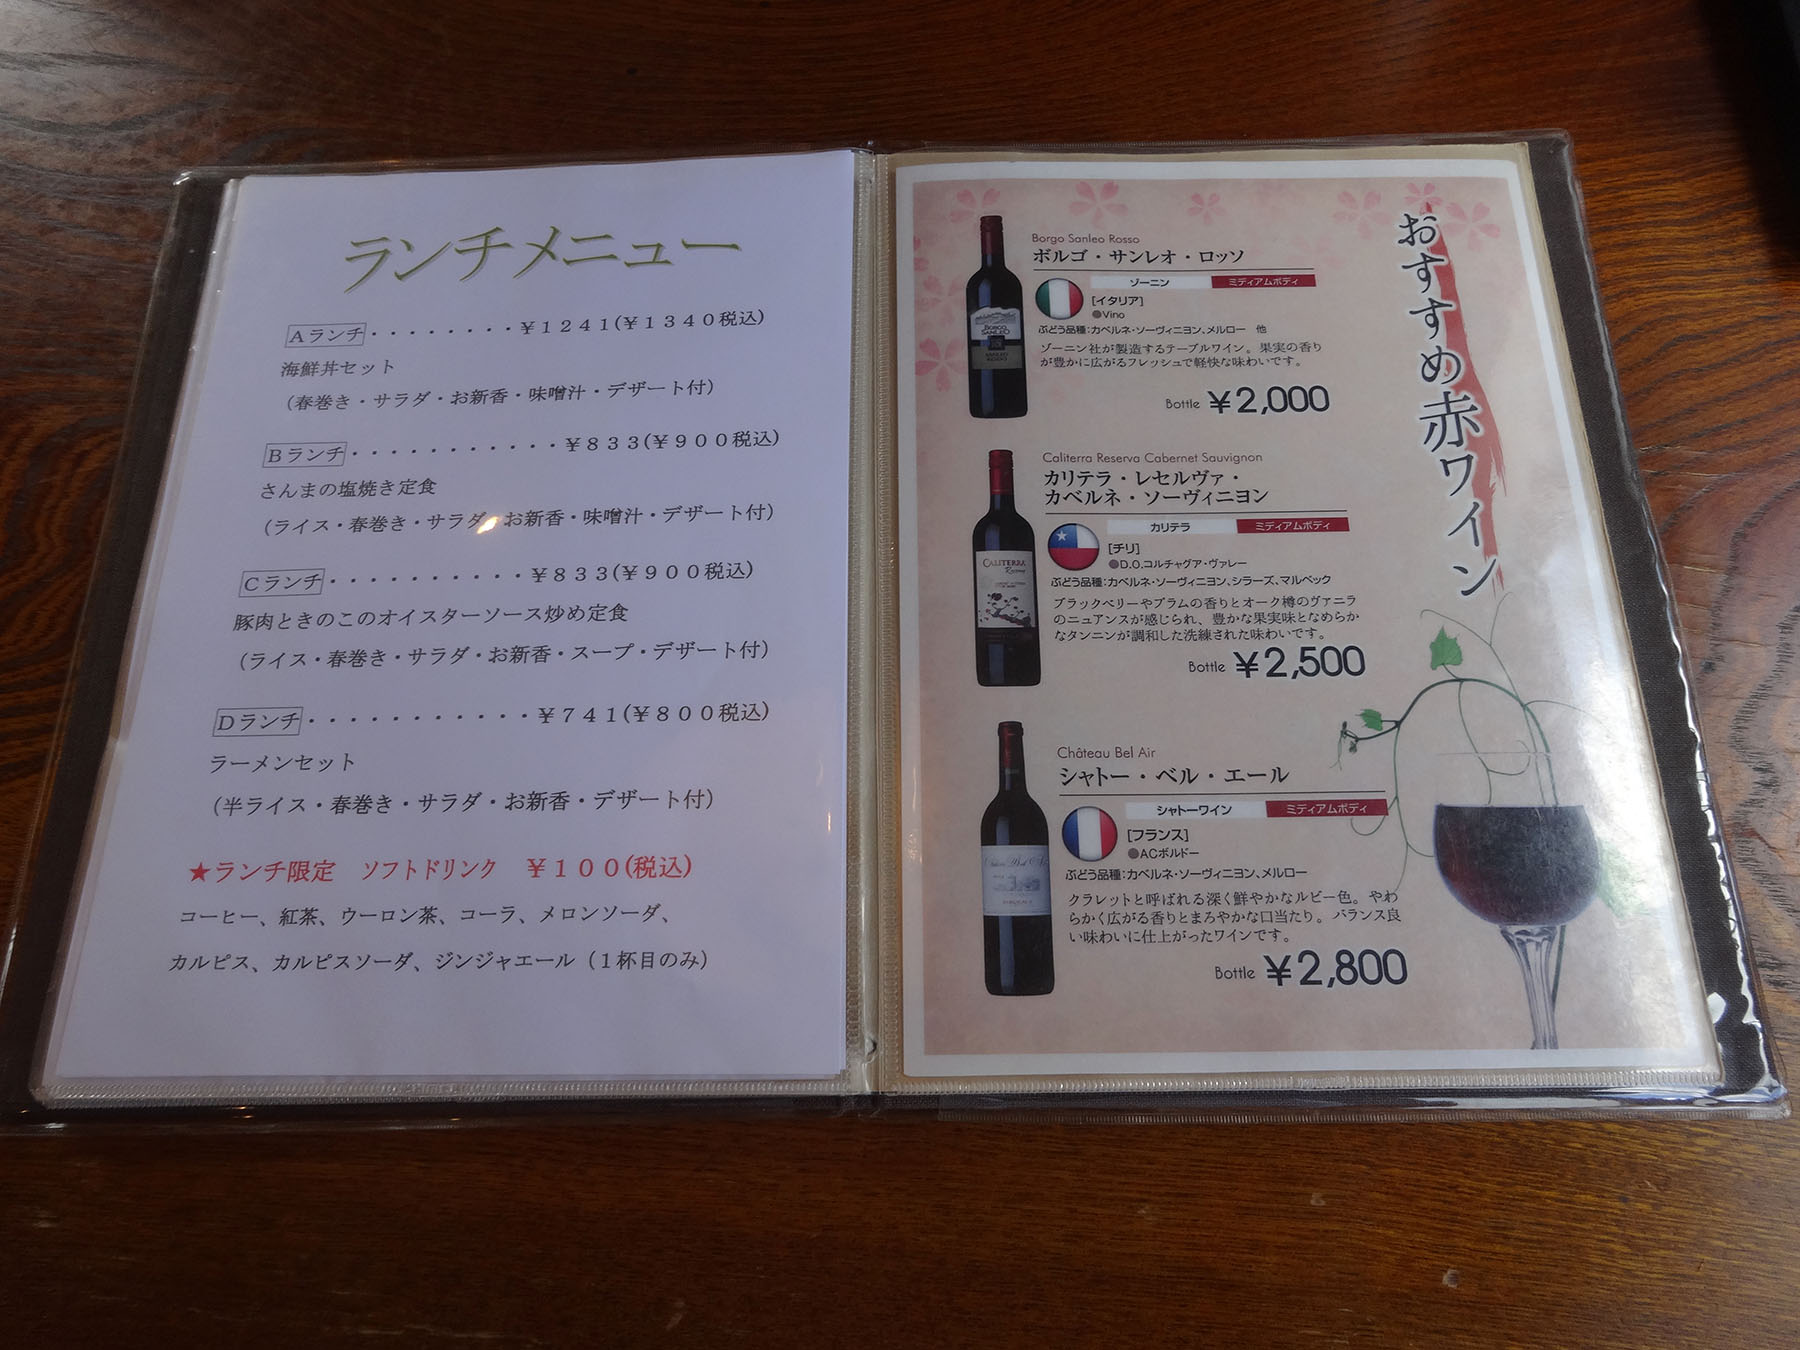 ランチメニュー
Aランチ・・・・・・・・¥1241(¥1340税込)
海鮮丼セット
(春巻き・サラダ・お新香・味噌汁・デザート付)
Bランチ・・・・・・・・・・・¥833(¥900税込)
さんまの塩焼き定食
(ライス・春巻き・サラダ・お新香・味噌汁・デザート付)
Cランチ・・・・・・・・・・¥833(¥900税込)
豚肉ときのこのオイスターソース炒め定食
(ライス・春巻き・サラダ・お新香・スープ・デザート付)
Dランチ・・・・・・・・・・・¥741(¥800税込)
ラーメンセット
(半ライス・春巻き・サラダ・お新香・デザート付)
★ランチ限定 ソフトドリンク ¥100(税込)
コーヒー、紅茶、ウーロン茶、コーラ、メロンソーダ、
カルピス、カルピスソーダ、ジンジャエール(1杯目のみ)
おすすめ赤ワイン
Borgo Sanleo Rosso
ボルゴ・サンレオ・ロッソ
ゾーニン ミディアムボディ
[イタリア]
●Vino
ぶどう品種:カベルネ・ソーヴィニヨン、メルロー 他
ゾーニン社が製造するテーブルワイン。果実の香り
が豊かに広がるフレッシュで軽快な味わいです。
Bottle ¥2,000
BORGO
SANLEO
Caliterra Reserva Cabernet Sauvignon
カリテラ・レセルヴァ・
カベルネ・ソーヴィニヨン
カリテラ ミディアムボディ
[チリ]
●D.O.コルチャグア・ヴァレー
ぶどう品種:カベルネ・ソーヴィニヨン、シラーズ、マルベック
ブラックベリーやプラムの香りとオーク樽のヴァニラ
のニュアンスが感じられ、豊かな果実味となめらか
なタンニンが調和した洗練された味わいです。
Bottle ¥2,500
CALITERRA
Reserva
Château Bel Air
シャトー・ベル・エール
シャトーワイン ミディアムボディ
[フランス]
●ACボルドー
ぶどう品種:カベルネ・ソーヴィニヨン、メルロー
クラレットと呼ばれる深く鮮やかなルビー色。やわ
らかく広がる香りとまろやかな口当たり。バランス良
い味わいに仕上がったワインです。
Bottle ¥2,800